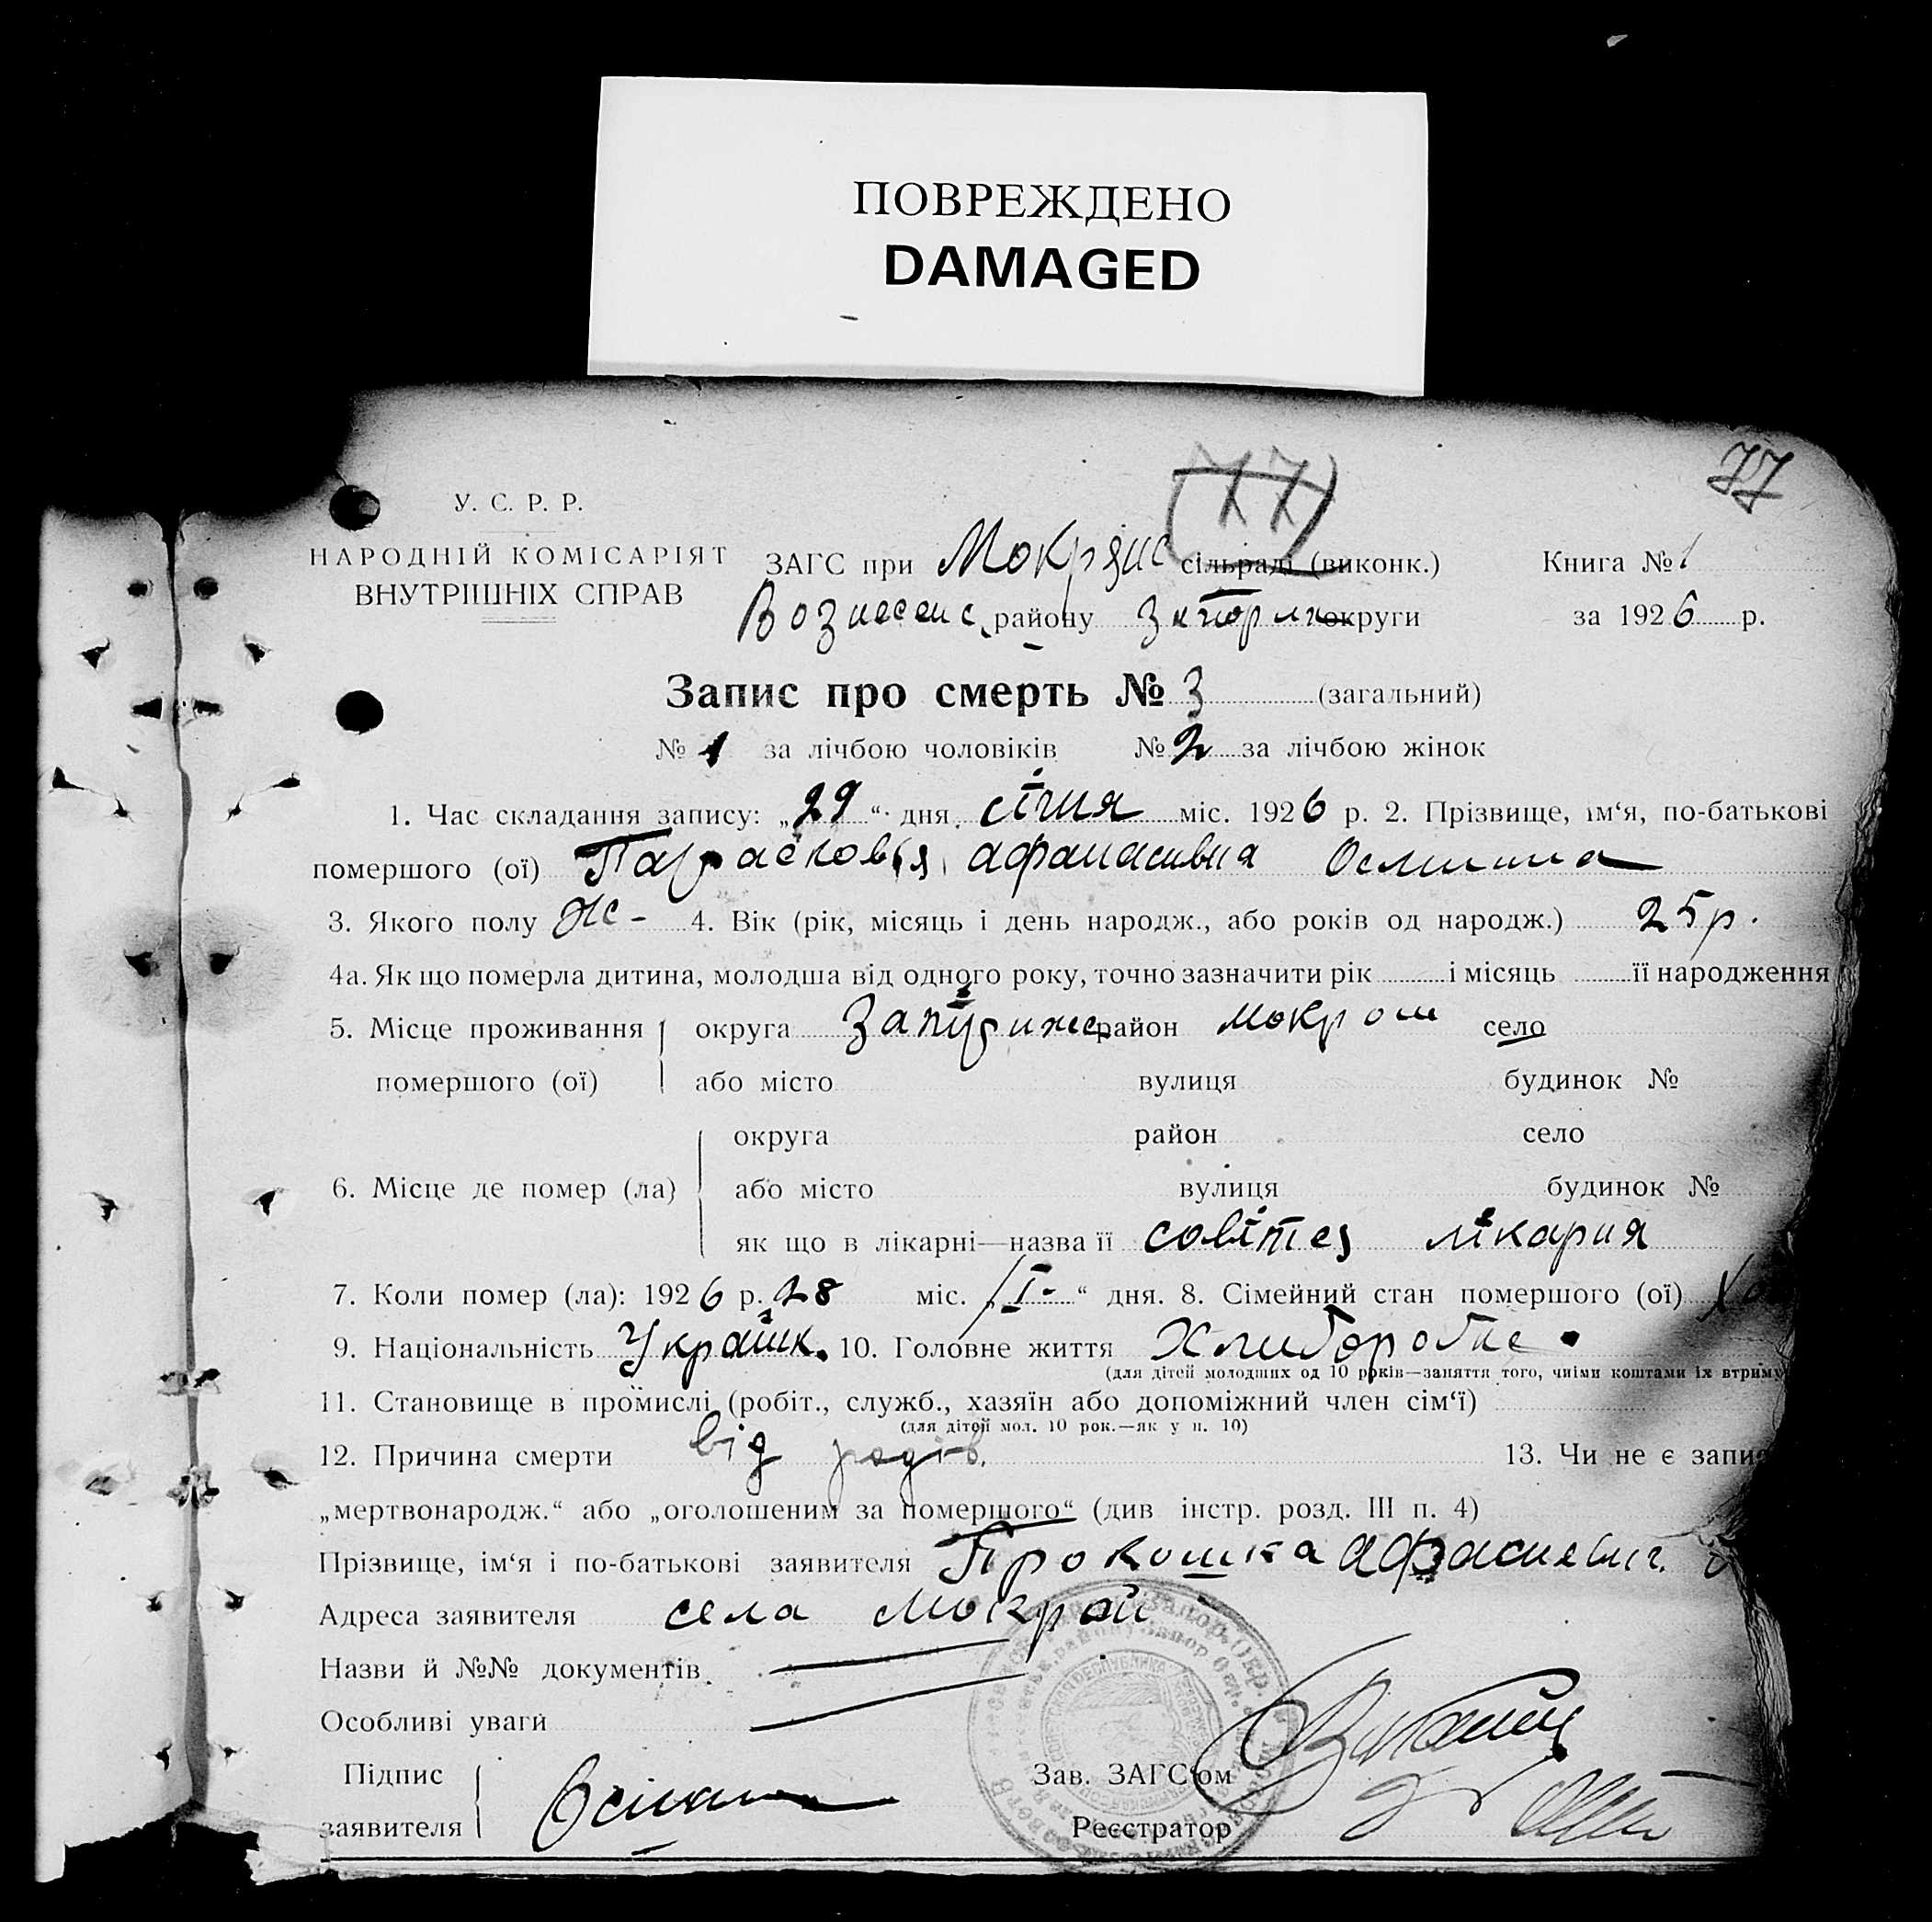 ПОВРЕЖДЕНО
DAMAGED
77
(77)
У. С. Р. Р.
НАРОДНІЙ КОМІСАРІЯТ
ВНУТРІШНІХ СПРАВ
ЗАГС при сільраді (виконк.) Книга № 1
Вознесенс району округи за 1926 р.
Запис про смерть № 3 (загальний)
№ 1 за лічбою чоловіків № 2 за лічбою жінок
1. Час складання запису: „29“ дня січня міс. 1926 р. 2. Прізвище, ім‘я, по-батькові
помершого (ої) Парасковія Афанасивна
3. Якого полу ж- 4. Вік (рік, місяць і день народж., або років од народж.) 25 р.
4а. Як що померла дитина, молодша від одного року, точно зазначити рік і місяць її народження
5. Місце проживання округа район Мокрош село
помершого (ої) або місто вулиця будинок №
округа район село
6. Місце де помер (ла) або місто вулиця будинок №
як що в лікарні—назва її лікарня
7. Коли помер (ла): 1926 р. 28 міс. „I-“ дня. 8. Сімейний стан помершого (ої)
9. Національність Україінк. 10. Головне життя
(для дітей молодших од 10 років—заняття того, чиїми коштами їх втриму
11. Становище в промислі (робіт., служб., хазяїн або допоміжний член сім‘ї)
(для дітей мол. 10 рок.—як у п. 10)
12. Причина смерти від родів. 13. Чи не є запис
„мертвонародж.“ або „оголошеним за помершого“ (див інстр. розд. III п. 4)
Прізвище, ім‘я і по-батькові заявителя
Адреса заявителя села Мокрой
Назви й №№ документів
Особливі уваги
Підпис Зав. ЗАГС‘ом
заявителя Реєстратор